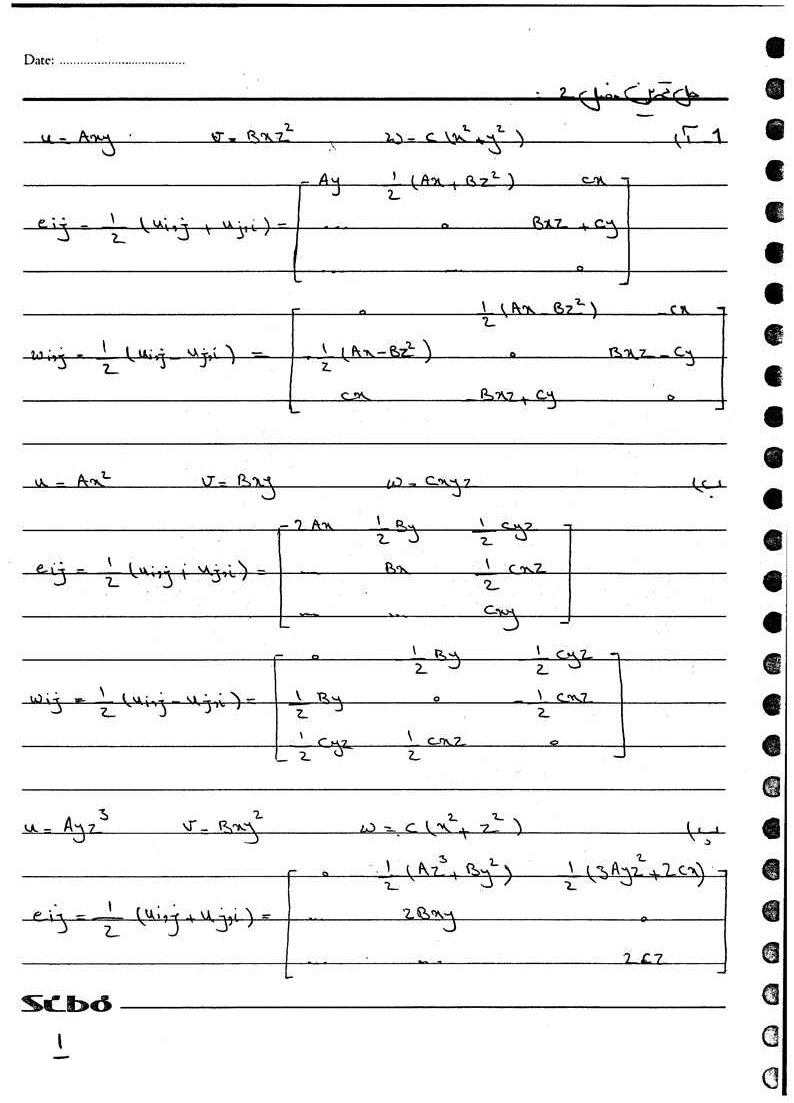 Date: ....................................
حل تمرین فصل 2 :
1-آ) u = Axy v = Bxz² w = C(x²+y²)
eij = 1/2 (ui,j + uj,i) = [ Ay 1/2(Ax+Bz²) Cx
... 0 Bxz + Cy
... ... 0 ]
wi,j = 1/2 (ui,j - uj,i) = [ 0 1/2(Ax-Bz²) -Cx
-1/2(Ax-Bz²) 0 Bxz-Cy
Cx -Bxz+Cy 0 ]
ب) u = Ax² v = Bxy w = Cxyz
eij = 1/2 (ui,j + uj,i) = [ 2Ax 1/2 By 1/2 Cyz
... Bx 1/2 Cxz
... ... Cxy ]
wij = 1/2 (ui,j - uj,i) = [ 0 1/2 By 1/2 Cyz
1/2 By 0 -1/2 Cxz
1/2 Cyz 1/2 Cxz 0 ]
پ) u = Ayz³ v = Bxy² w = C(x²+z²)
eij = 1/2 (ui,j + uj,i) = [ 0 1/2(Az³+By²) 1/2(3Ayz²+2Cx)
... 2Bxy 0
... ... 2Cz ]
1